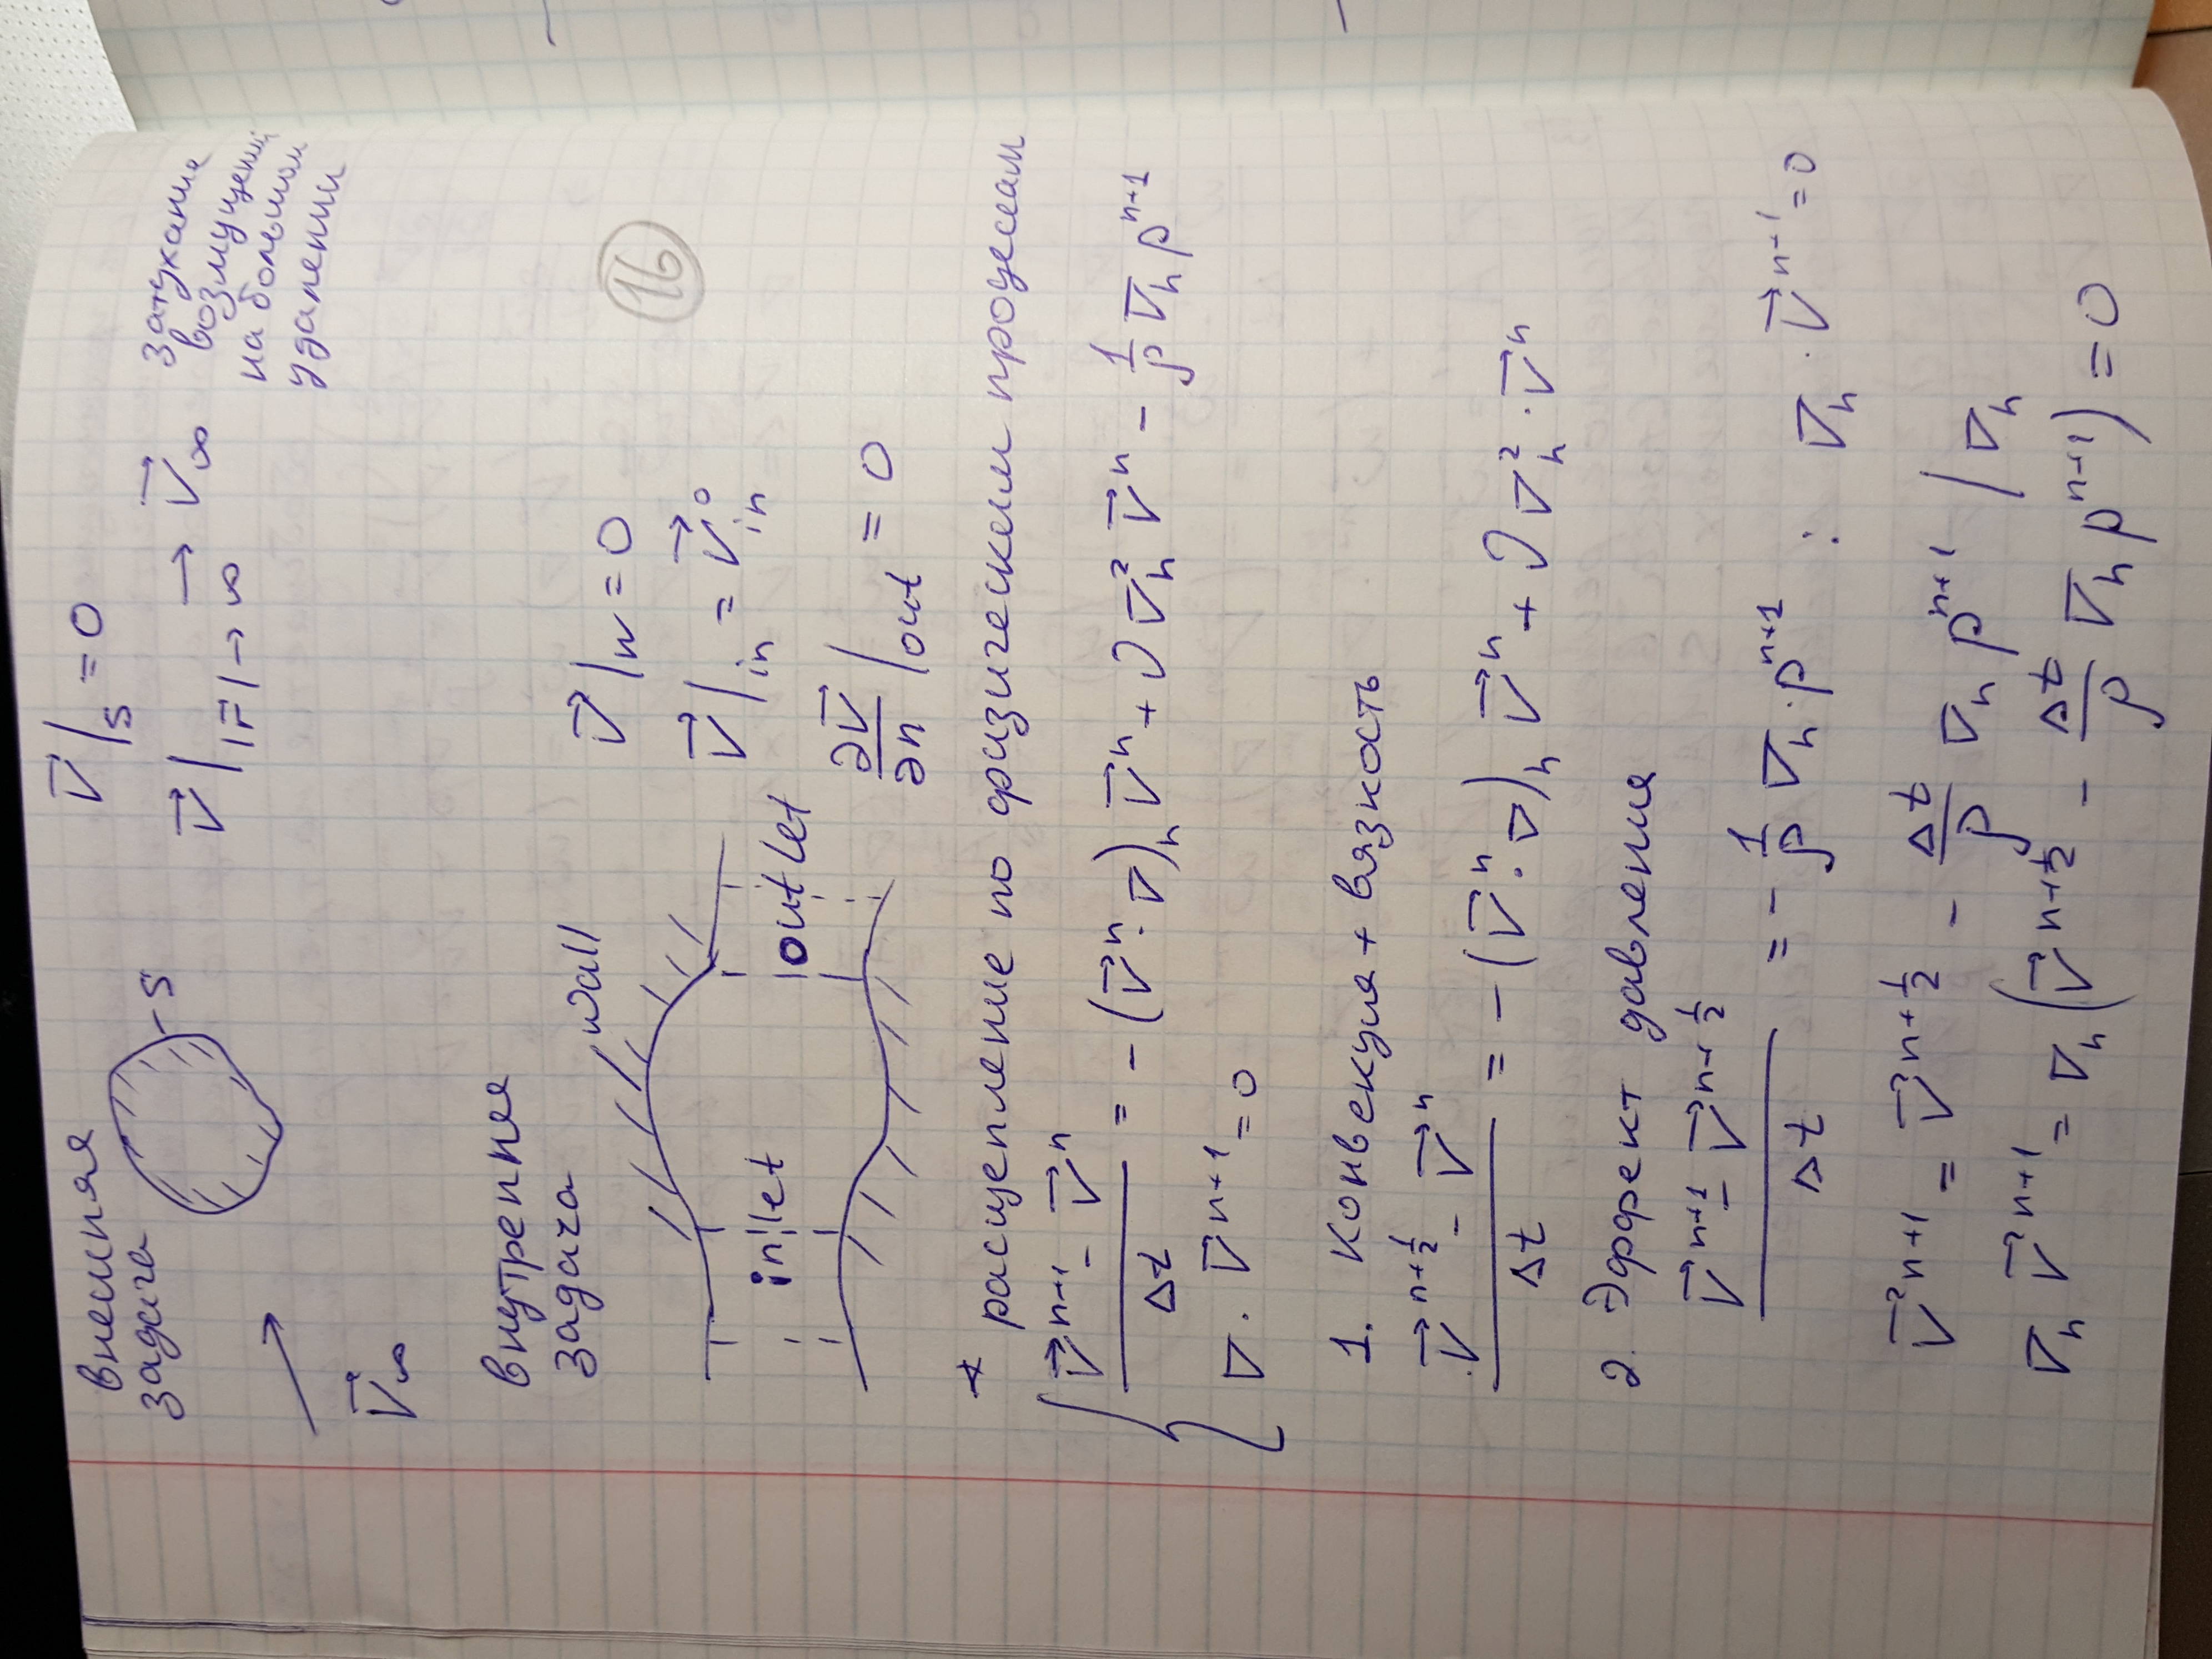 внешняя
задача
S
V⃗|_S = 0
V⃗|_{|r⃗|→∞} → V⃗_∞
затухание
возмущений
на большом
удалении
V⃗_∞
внутренняя
задача
wall
inlet
outlet
V⃗|_w = 0
V⃗|_in = V⃗_in^0
∂V⃗/∂n|_out = 0
16
* расщепление по физическим процессам
{ (V⃗^{n+1} - V⃗^n)/Δt = -(V⃗^n·∇)_h V⃗^n + ν∇_h^2 V⃗^n - 1/ρ ∇_h p^{n+1}
∇·V⃗^{n+1} = 0
1. Конвекция + вязкость
(V⃗^{n+1/2} - V⃗^n)/Δt = -(V⃗^n·∇)_h V⃗^n + ν∇_h^2·V⃗^n
2. Эффект давления
(V⃗^{n+1} - V⃗^{n+1/2})/Δt = -1/ρ ∇_h·p^{n+1} : ∇_h·V⃗^{n+1} = 0
V⃗^{n+1} = V⃗^{n+1/2} - Δt/ρ ∇_h p^{n+1} | ∇_h
∇_h V⃗^{n+1} = ∇_h (V⃗^{n+1/2} - Δt/ρ ∇_h p^{n+1}) = 0